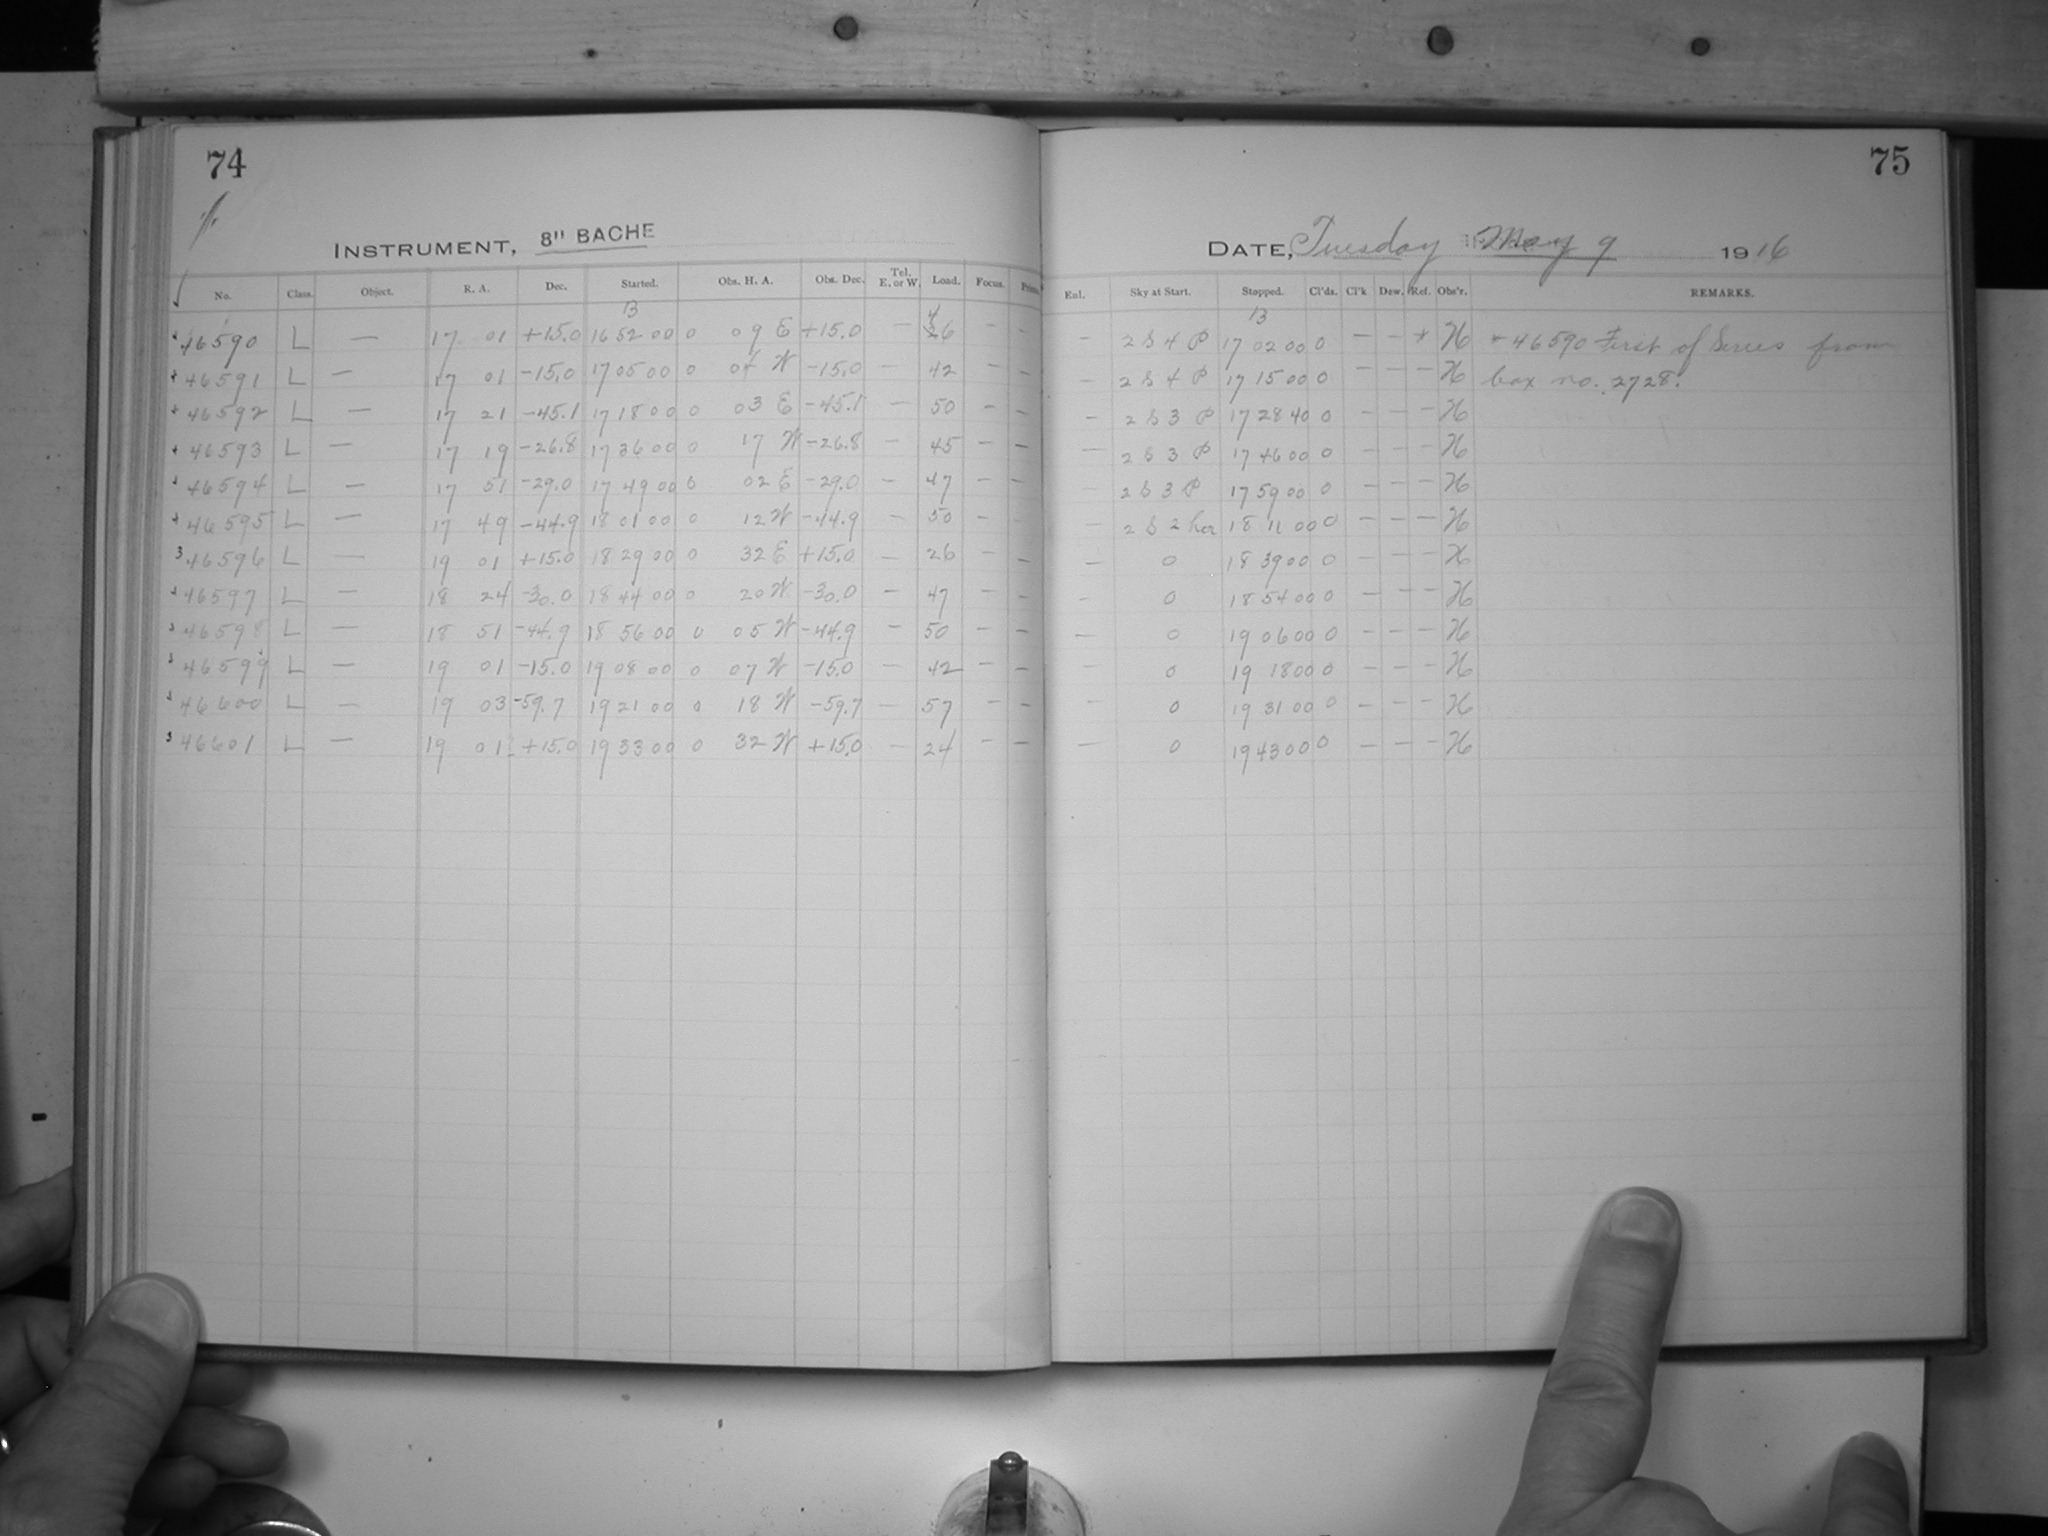 74
INSTRUMENT, 8" BACHE
No. Class. Object. R. A. Dec. Started. Obs. H. A. Obs. Dec. Tel. E. or W. Load. Focus.
B
46590 L — 17 01 +15.0 16 52 00 0 09 E +15.0 — 26 — —
46591 L — 17 01 -15.0 17 05 00 0 04 W -15.0 — 42 — —
46592 L — 17 21 -45.1 17 18 00 0 03 E -45.1 — 50 — —
46593 L — 17 19 -26.8 17 36 00 0 17 W -26.8 — 45 — —
46594 L — 17 51 -29.0 17 49 00 0 02 E -29.0 — 47 — —
46595 L — 17 49 -44.9 18 01 00 0 12 W -44.9 — 50 — —
3 46596 L — 19 01 +15.0 18 29 00 0 32 E +15.0 — 26 — —
46597 L — 18 24 -30.0 18 44 00 0 20 W -30.0 — 47 — —
46598 L — 18 51 -44.9 18 56 00 0 05 W -44.9 — 50 — —
46599 L — 19 01 -15.0 19 08 00 0 07 W -15.0 — 42 — —
46600 L — 19 03 -59.7 19 21 00 0 18 W -59.7 — 57 — —
46601 L — 19 01 +15.0 19 33 00 0 32 W +15.0 — 24 — —
75
DATE, Tuesday May 9 1916
Enl. Sky at Start. Stopped. Cl'ds. Cl'k Dew. Ref. Obs'r. REMARKS.
B
— 2 S 4 P 17 02 00 0 — — * H * 46590 First of Series from
— 2 S 4 P 17 15 00 0 — — — H box no. 2728.
— 2 S 3 P 17 28 40 0 — — — H
— 2 S 3 P 17 46 00 0 — — — H
— 2 S 3 P 17 59 00 0 — — — H
— 2 S 2 hor 18 11 00 0 — — — H
— 0 18 39 00 0 — — — H
— 0 18 54 00 0 — — — H
— 0 19 06 00 0 — — — H
— 0 19 18 00 0 — — — H
— 0 19 31 00 0 — — — H
— 0 19 43 00 0 — — — H